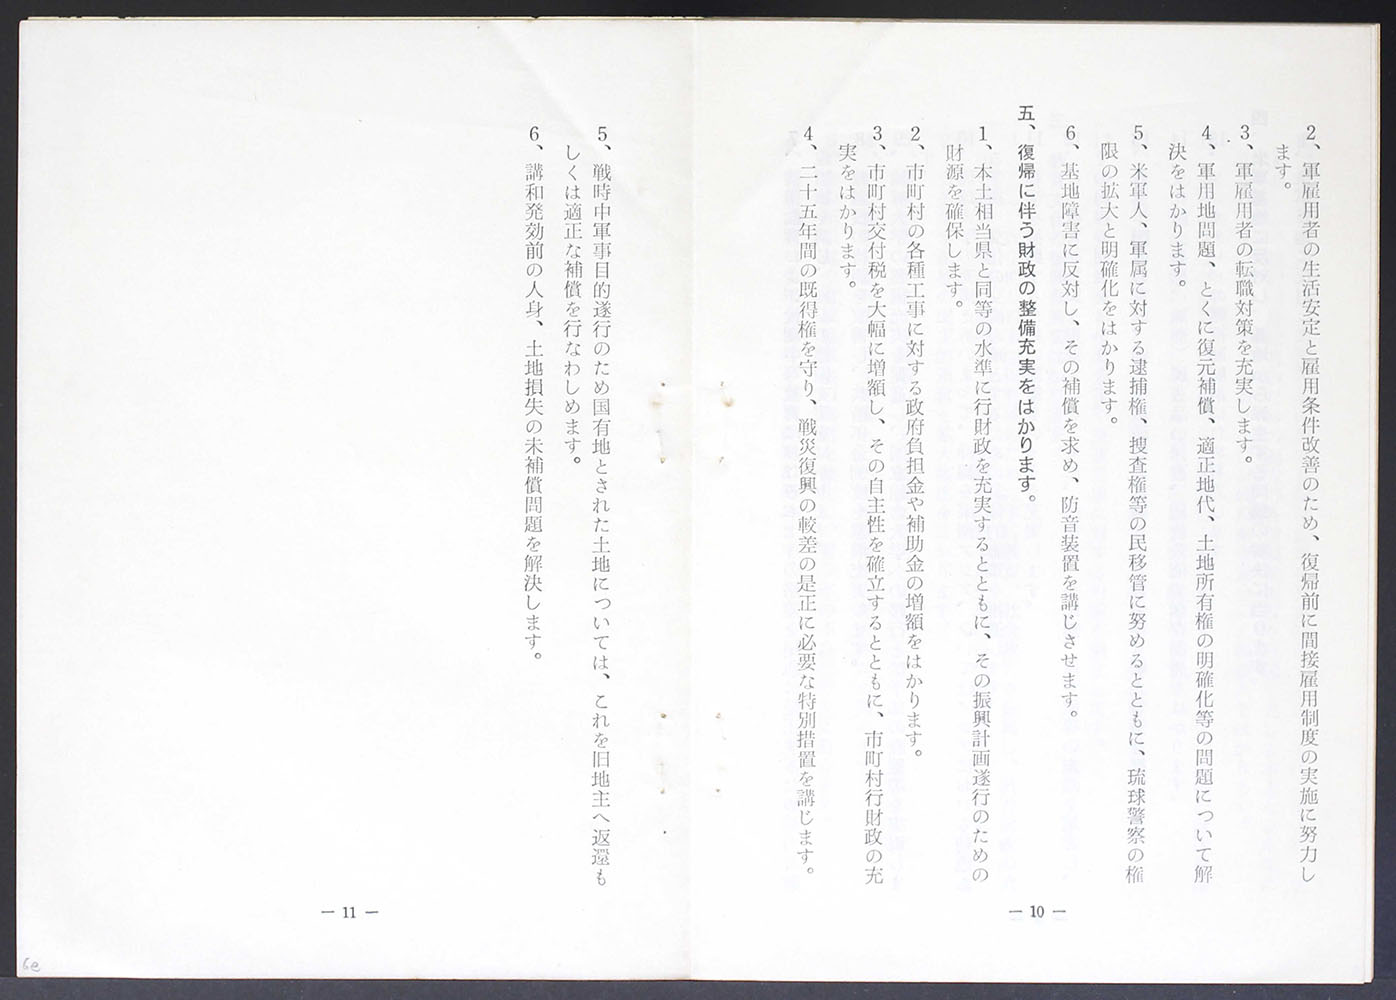 2、軍雇用者の生活安定と雇用条件改善のため、復帰前に間接雇用制度の実施に努力し
ます。
3、軍雇用者の転職対策を充実します。
4、軍用地問題、とくに復元補償、適正地代、土地所有権の明確化等の問題について解
決をはかります。
5、米軍人、軍属に対する逮捕権、捜査権等の民移管に努めるとともに、琉球警察の権
限の拡大と明確化をはかります。
6、基地障害に反対し、その補償を求め、防音装置を講じさせます。
五、復帰に伴う財政の整備充実をはかります。
1、本土相当県と同等の水準に行財政を充実するとともに、その振興計画遂行のための
財源を確保します。
2、市町村の各種工事に対する政府負担金や補助金の増額をはかります。
3、市町村交付税を大幅に増額し、その自主性を確立するとともに、市町村行財政の充
実をはかります。
4、二十五年間の既得権を守り、戦災復興の較差の是正に必要な特別措置を講じます。
— 10 —
5、戦時中軍事目的遂行のため国有地とされた土地については、これを旧地主へ返還も
しくは適正な補償を行なわしめます。
6、講和発効前の人身、土地損失の未補償問題を解決します。
— 11 —
6e